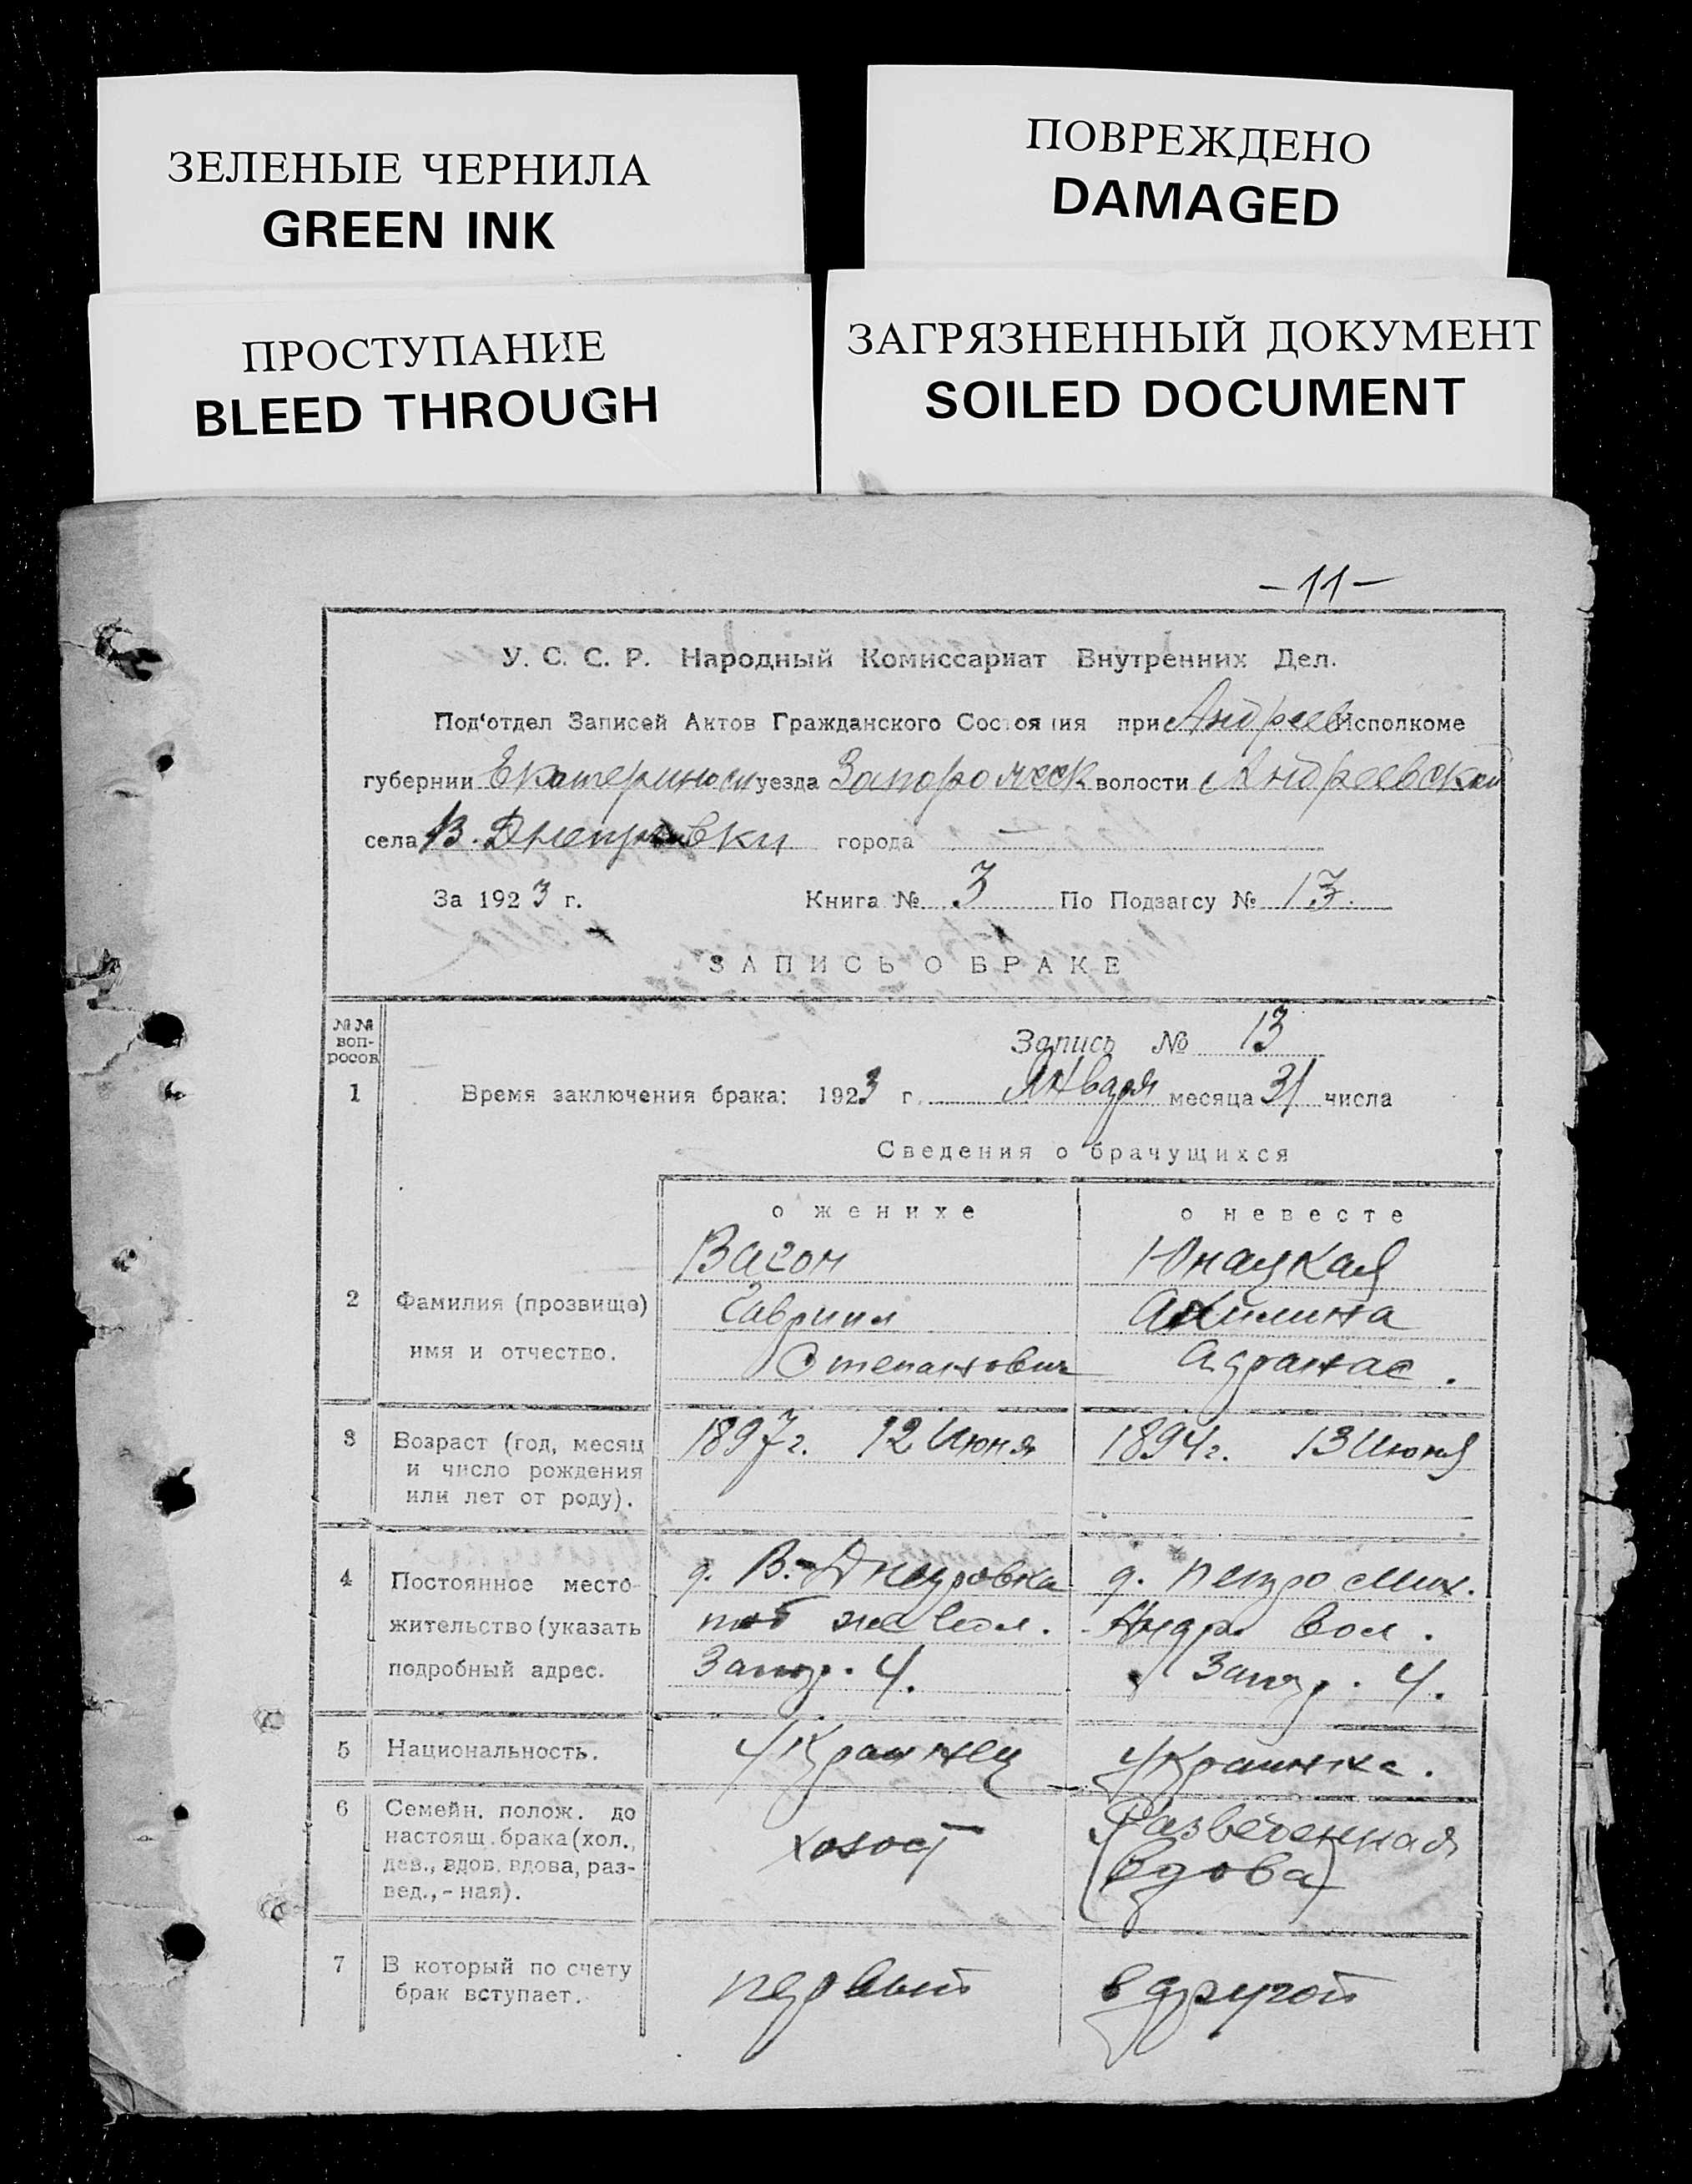 ЗЕЛЕНЫЕ ЧЕРНИЛА
GREEN INK
ПОВРЕЖДЕНО
DAMAGED
ПРОСТУПАНИЕ
BLEED THROUGH
ЗАГРЯЗНЕННЫЙ ДОКУМЕНТ
SOILED DOCUMENT
-11-
У. С. С. Р. Народный Комиссариат Внутренних Дел.
Под'отдел Записей Актов Гражданского Состояния при Андреев Исполкоме
губернии Екатеринос уезда Запорожск волости Андреевской
села В. Днепровки города —
За 1923 г. Книга № 3 По Подзагсу № 13.
ЗАПИСЬ О БРАКЕ
№№ воп-росов
Запись № 13
1 Время заключения брака: 1923 г. Января месяца 31 числа
Сведения о брачущихся
о женихе о невесте
Вагон Юнацкая
2 Фамилия (прозвище) Гавриил Акилина
имя и отчество. Степанович Адранас.
3 Возраст (год, месяц 1897 г. 12 Июня 1894 г. 13 Июня
и число рождения
или лет от роду).
4 Постоянное место- д. В.-Днепровка д. Петро Мих.
жительство (указать той же вол. Андр. вол.
подробный адрес. Запор. у. Запор. у.
5 Национальность. Украинец Украинка.
6 Семейн. полож. до Разведенная
настоящ. брака (хол., холост (вдова)
дев., вдов. вдова, раз-
вед., - ная).
7 В который по счету первый в другой
брак вступает.